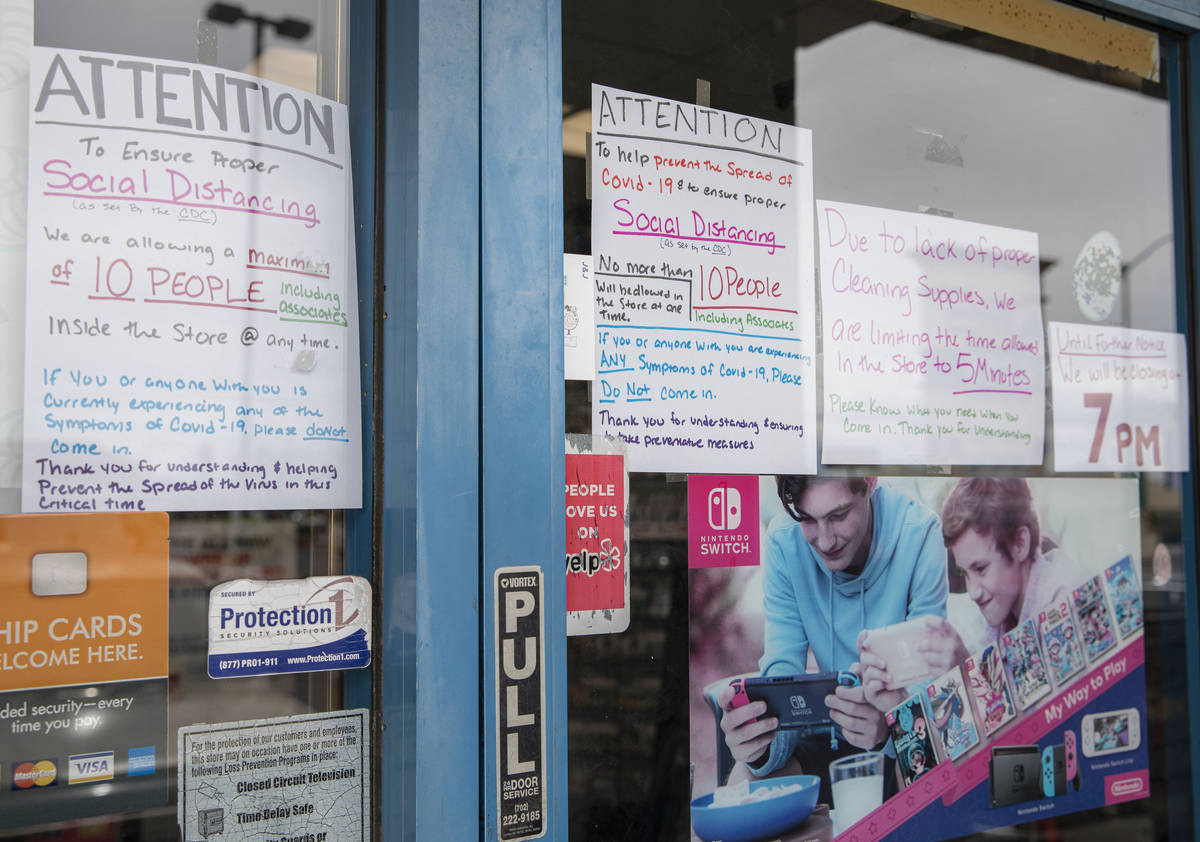 ATTENTION
To Ensure Proper
Social Distancing
(as set By the CDC)
We are allowing a maximum
of 10 PEOPLE Including
Associates
Inside the Store @ any time.
If You or anyone with you is
Currently experiencing any of the
Symptoms of Covid-19, Please do NOT
Come in.
Thank you for understanding & helping
Prevent the Spread of the Virus in this
Critical time
HIP CARDS
ELCOME HERE.
ded security—every
time you pay.
MasterCard
VISA
SECURED BY
Protection 1
SECURITY SOLUTIONS
(877) PRO1-911 www.Protection1.com
For the protection of our customers and employees,
this store may on occasion have one or more of the
following Loss Prevention Programs in place:
Closed Circuit Television
Time Delay Safe
Guards or
VORTEX
PULL
DOOR
SERVICE
(702)
222-9185
ATTENTION
To help prevent the Spread of
Covid-19 & to ensure proper
Social Distancing
(as set by the CDC)
No more than
Will be allowed in
the Store at one
time.
10 People
Including Associates
If you or anyone with you are experiencing
ANY Symptoms of Covid-19, Please
Do Not Come in.
Thank you for understanding & ensuring
to take preventative measures
PEOPLE
OVE US
ON
yelp
Due to lack of proper
Cleaning Supplies, We
are limiting the time allowed
In the Store to 5 Minutes
Please Know what you need when you
Come in. Thank you for Understanding
Until Further Notice
We will be closing at
7 PM
NINTENDO
SWITCH.
NINTENDO
SWITCH
My Way to Play
Nintendo Switch
Nintendo Switch Lite
Nintendo